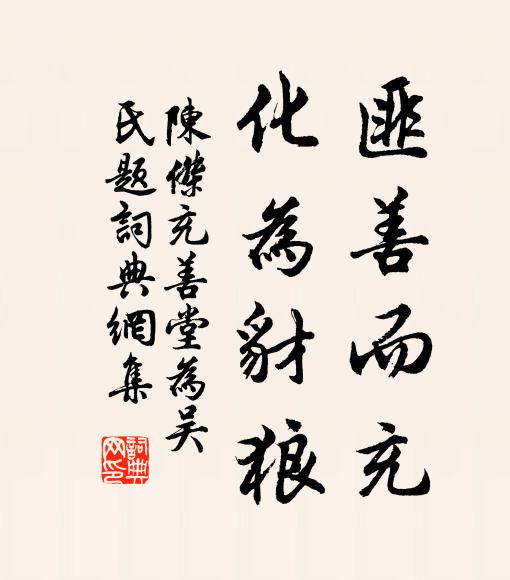 匪善而充
化為豺狼
陳傑充善堂為吳
氏題詞典網集
詞典網印